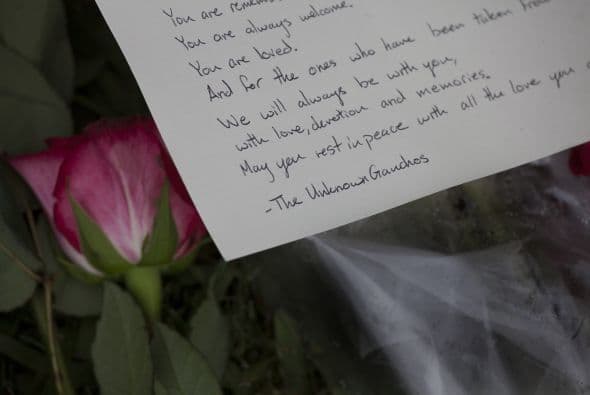 You are
You are always welcome.
You are loved.
And for the ones who have been taken from
We will always be with you,
with love, devotion and memories.
May you rest in peace with all the love you
-The Unknown Gauchos